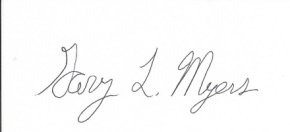 Gary L. Myers